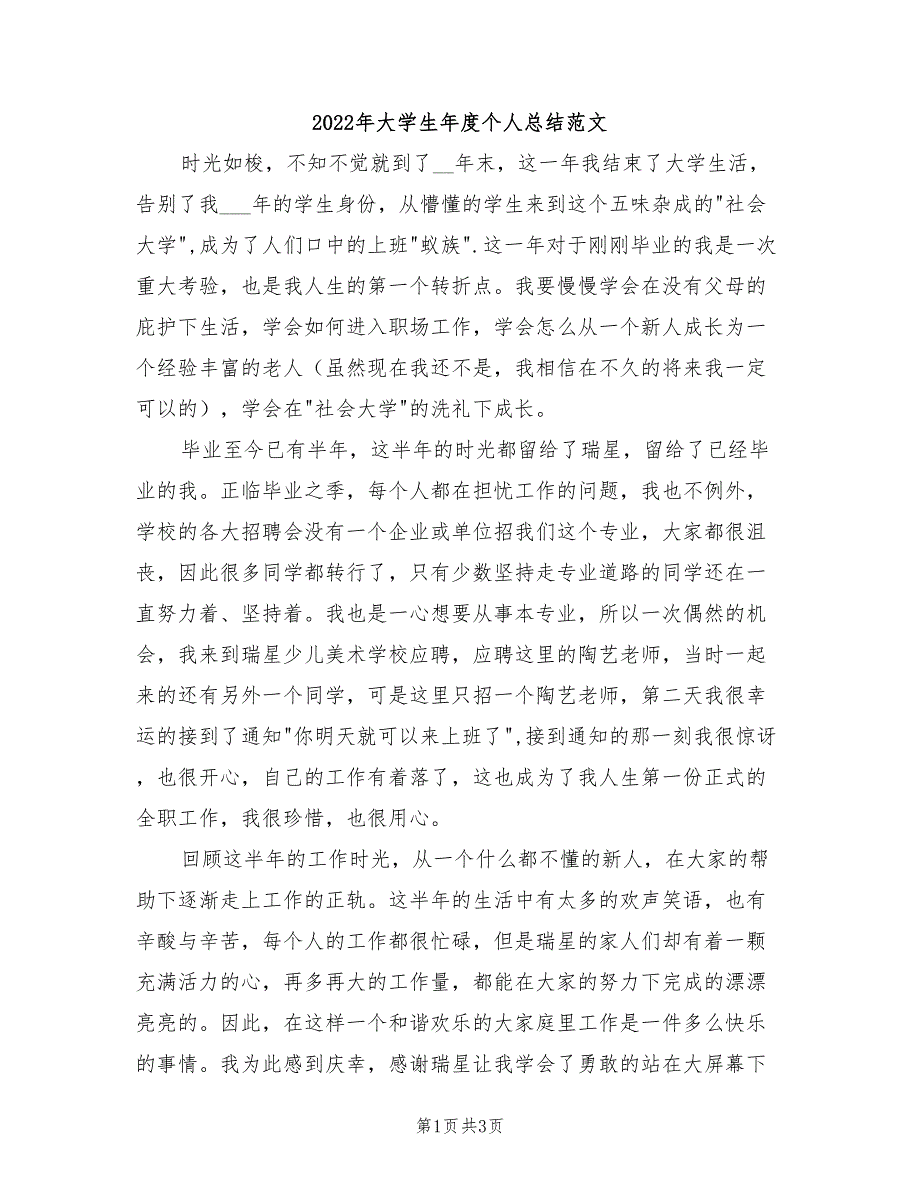 2022年大学生年度个人总结范文
时光如梭，不知不觉就到了__年末，这一年我结束了大学生活，
告别了我___年的学生身份，从懵懂的学生来到这个五味杂成的"社会
大学",成为了人们口中的上班"蚁族".这一年对于刚刚毕业的我是一次
重大考验，也是我人生的第一个转折点。我要慢慢学会在没有父母的
庇护下生活，学会如何进入职场工作，学会怎么从一个新人成长为一
个经验丰富的老人（虽然现在我还不是，我相信在不久的将来我一定
可以的），学会在"社会大学"的洗礼下成长。
毕业至今已有半年，这半年的时光都留给了瑞星，留给了已经毕
业的我。正临毕业之季，每个人都在担忧工作的问题，我也不例外，
学校的各大招聘会没有一个企业或单位招我们这个专业，大家都很沮
丧，因此很多同学都转行了，只有少数坚持走专业道路的同学还在一
直努力着、坚持着。我也是一心想要从事本专业，所以一次偶然的机
会，我来到瑞星少儿美术学校应聘，应聘这里的陶艺老师，当时一起
来的还有另外一个同学，可是这里只招一个陶艺老师，第二天我很幸
运的接到了通知"你明天就可以来上班了",接到通知的那一刻我很惊讶
，也很开心，自己的工作有着落了，这也成为了我人生第一份正式的
全职工作，我很珍惜，也很用心。
回顾这半年的工作时光，从一个什么都不懂的新人，在大家的帮
助下逐渐走上工作的正轨。这半年的生活中有太多的欢声笑语，也有
辛酸与辛苦，每个人的工作都很忙碌，但是瑞星的家人们却有着一颗
充满活力的心，再多再大的工作量，都能在大家的努力下完成的漂漂
亮亮的。因此，在这样一个和谐欢乐的大家庭里工作是一件多么快乐
的事情。我为此感到庆幸，感谢瑞星让我学会了勇敢的站在大屏幕下
第1页共3页